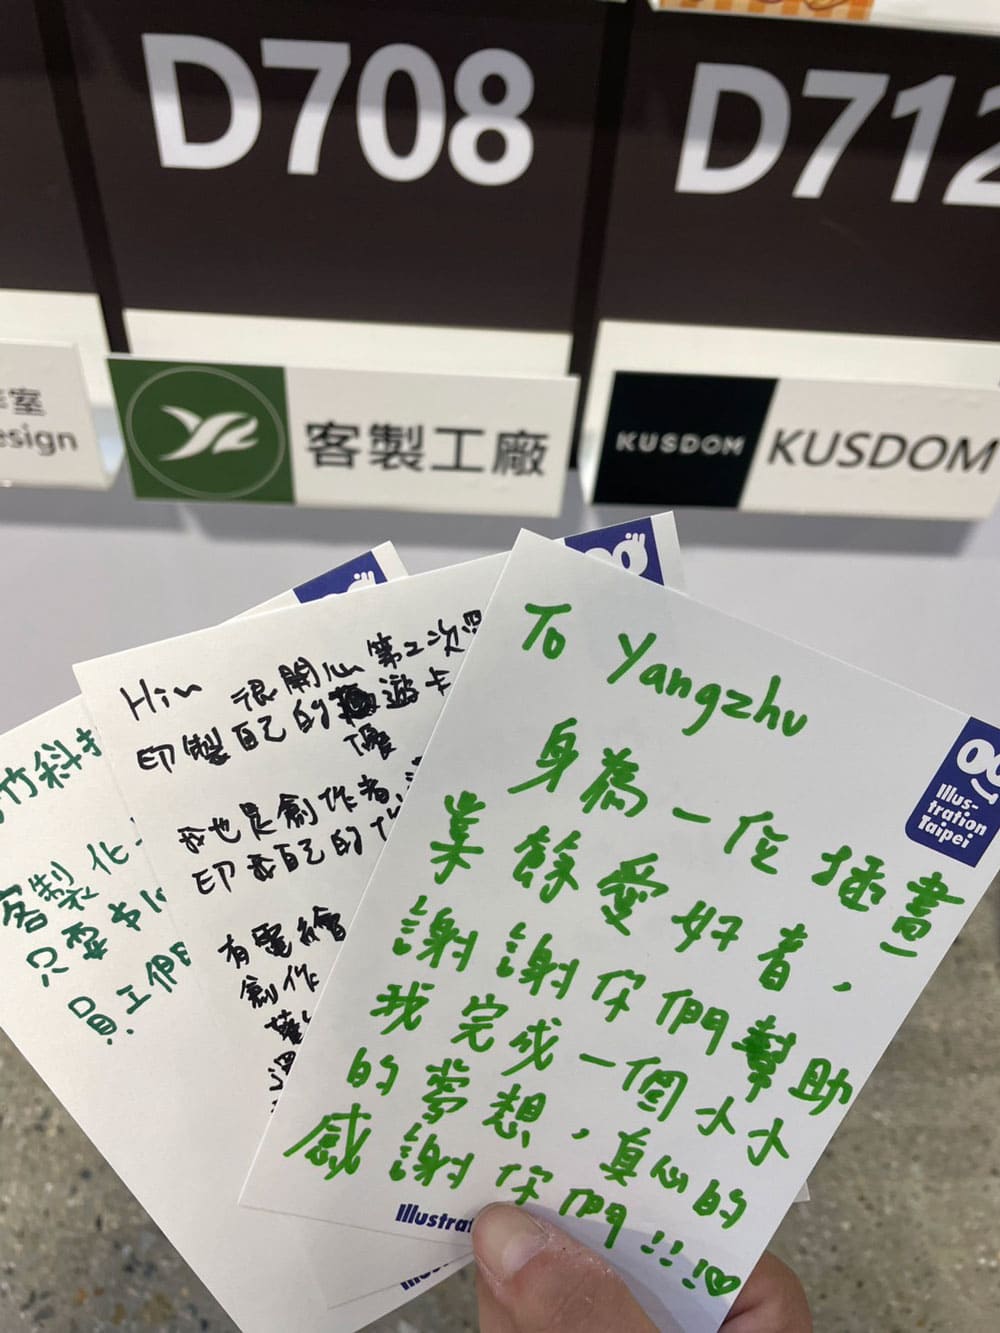 D708
D712
室
esign
客製工廠
KUSDOM
KUSDOM
竹科
客製化
只要
員工們
Hi~ 很開心第二次
印製自己的 遊卡
優
我也是創作者
印 自己的
有電繪
創作
To Yangzhu
身為一位插畫
業餘愛好者，
謝謝你們幫助
我完成一個小小
的夢想，真心的
感謝你們!!!♡
Illus-
tration
Taipei
Illustra